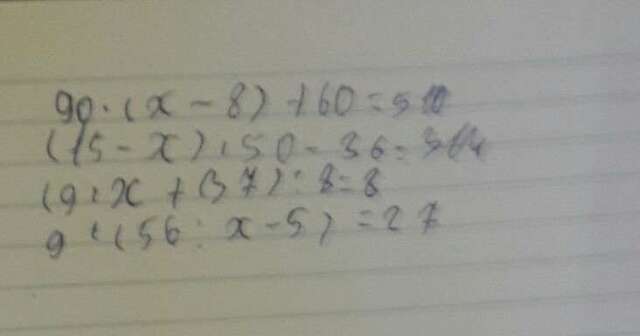 90·(x-8)+60=510
(15-x)·50-36=314
(9·x+37):8=8
9·(56:x-5)=27